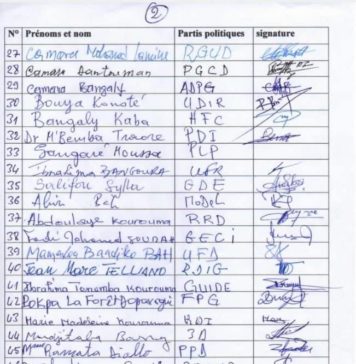 2
N° Prénoms et nom Partis politiques signature
27 Camara Mohamed Lamine RGUD
28 Camara Dantouman PGCD
29 Camara Bangaly ADPG
30 Bouya Konaté UDIR
31 Bangaly Kaba HFC
32 Dr M'Bemba Traore PDI
33 Sangaré Moussa PLP
34 Ibrahima BANGOURA UFR
35 Salifou Sylla GDE
36 Aliou Bah MoDeL
37 Abdoulaye Kourouma RRD
38 Fodé Mohamed SOUMAH GECi
39 Mamadou Bandiko BAH UFD
40 Jean Marc TELLIANO RDIG
41 Ibrahima Tanamba Kourouma GUIDE
42 Pokpa La Forêt FPG
43 Marie Madeleine Kourouma RDI
44 Barry 3D
45 Mme Ramata Diallo PPD